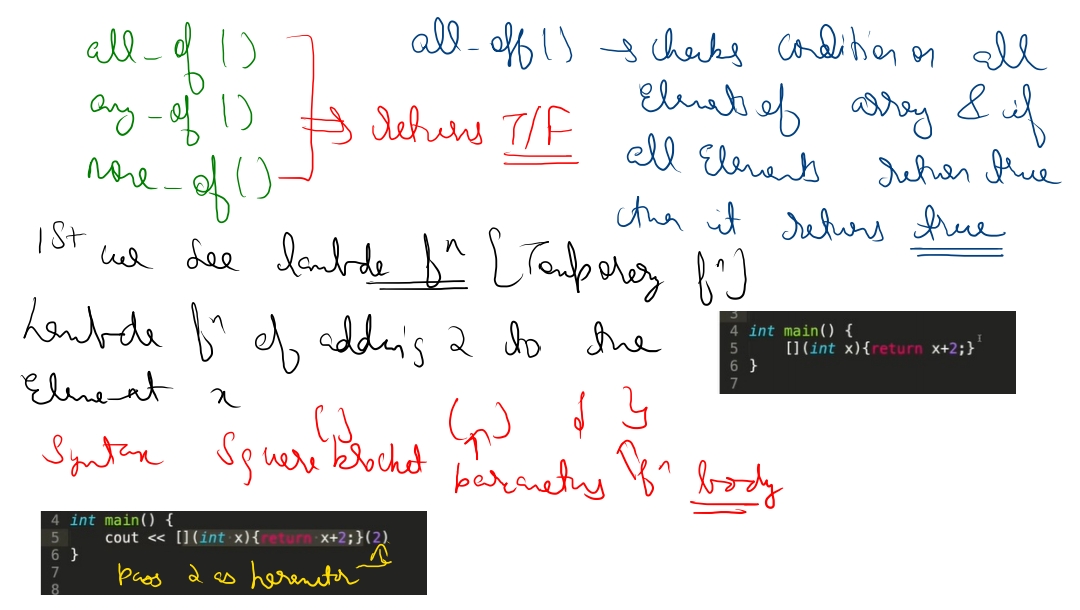 all-of ()
any-of ()
none-of ()
⇒ returns T/F
all-off() → checks condition on all
Elements of array & if
all Elements return true
then it returns true
1st we see lambda fⁿ [Temporary fⁿ]
Lambda fⁿ of adding 2 to the
Element x
3
4 int main() {
5 [](int x){return x+2;}
6 }
7
[] ( , ) { }
Syntax Square bracket parameters fⁿ body
4 int main() {
5 cout << [](int x){return x+2;}(2)
6 }
7
8
pass 2 as parameter